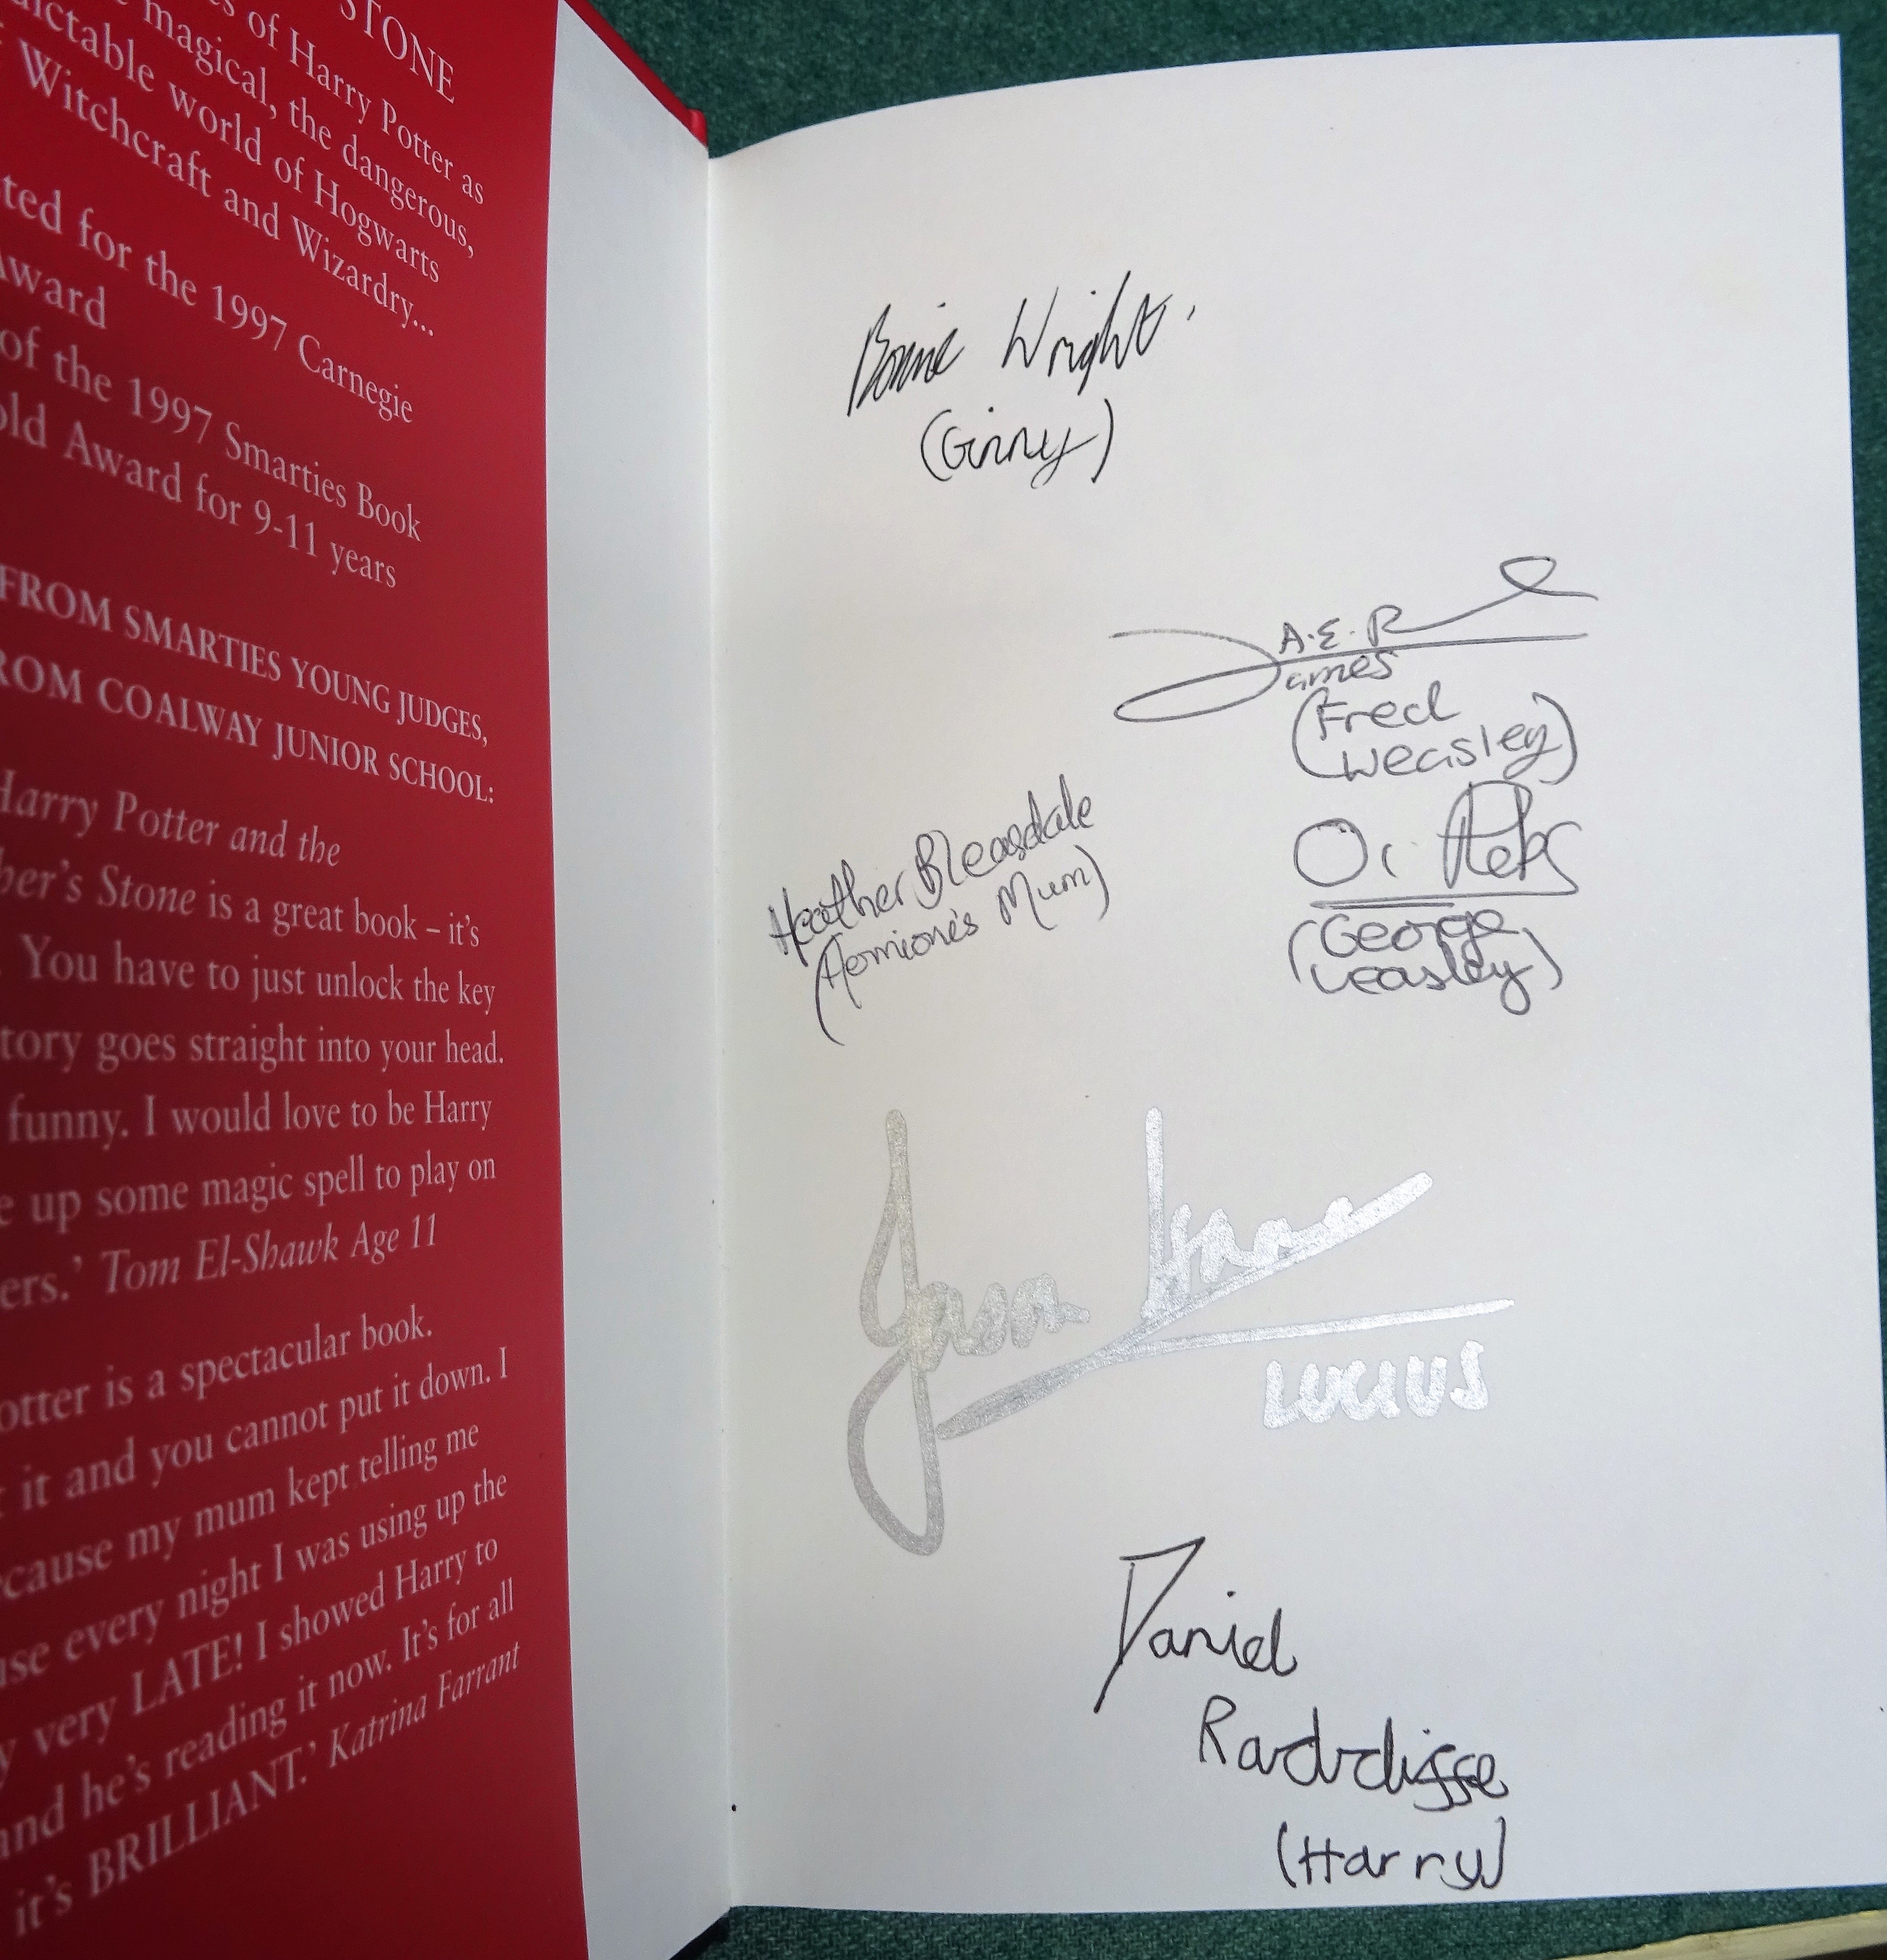 STONE
of Harry Potter as
magical, the dangerous,
world of Hogwarts
Witchcraft and Wizardry...
for the 1997 Carnegie
Award
of the 1997 Smarties Book
Award for 9-11 years
FROM SMARTIES YOUNG JUDGES,
COALWAY JUNIOR SCHOOL:
Harry Potter and the
Stone is a great book – it's
You have to just unlock the key
goes straight into your head.
funny. I would love to be Harry
up some magic spell to play on
Tom El-Shawk Age 11
is a spectacular book.
it and you cannot put it down. I
my mum kept telling me
every night I was using up the
very LATE! I showed Harry to
and he's reading it now. It's for all
it's BRILLIANT.' Katrina Farrant
Bonnie Wright
(Ginny)
A.E.R
James
(Fred
Weasley)
Heather Bleasdale
(Hermione's Mum)
(George
Weasley)
Jason
LUCIUS
Daniel
Radcliffe
(Harry)